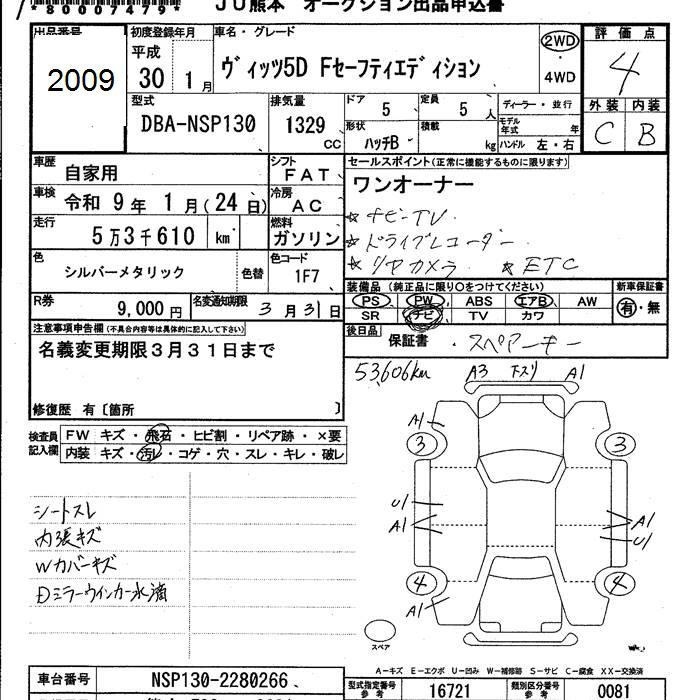 *80007479* JU熊本 オークション出品申込書
出品番号 2009
初度登録年月 平成30年 1月
車名・グレード ヴィッツ5D Fセーフティエディション
2WD ・ 4WD
評価点 4
型式 DBA-NSP130
排気量 1329 CC
ドア 5 定員 5人
形状 ハッチB 積載 kg
ディーラー・並行
モデル年式 年
ハンドル 左・右
外装 内装
C B
車歴 自家用
シフト FAT
セールスポイント(正常に機能するものに限ります)
車検 令和 9年 1月(24日)
冷房 AC
ワンオーナー
走行 5万3千610 km
燃料 ガソリン
☆ナビ-TV.
☆ドライブレコーダー
☆リアカメラ ☆ETC
色 シルバーメタリック 色替
色コード 1F7
装備品(純正品に限り○をつけてください) 新車保証書
PS PW ABS エアB AW 有・無
SR ナビ TV カワ
R券 9,000円
名変通知期限 3月31日
後日品 保証書 ・スペアーキー
注意事項申告欄(不具合内容等は具体的に記入して下さい)
名義変更期限3月31日まで
修復歴 有〔箇所 〕
53,606km A3 下スリ A1
検査員記入欄
FW キズ・飛石・ヒビ割・リペア跡・×要
内装 キズ・汚レ・コゲ・穴・スレ・キレ・破レ
A1
3 3
シートスレ
内張キズ
Wカバーキズ
Dミラーウインカー水滴
U1 A1
A1 U1
4 4
A1
スペア
A-キズ E-エクボ U-凹み W-補修跡 S-サビ C-腐食 XX-交換済
車台番号 NSP130-2280266
型式指定番号 参考 16721 類別区分番号 参考 0081